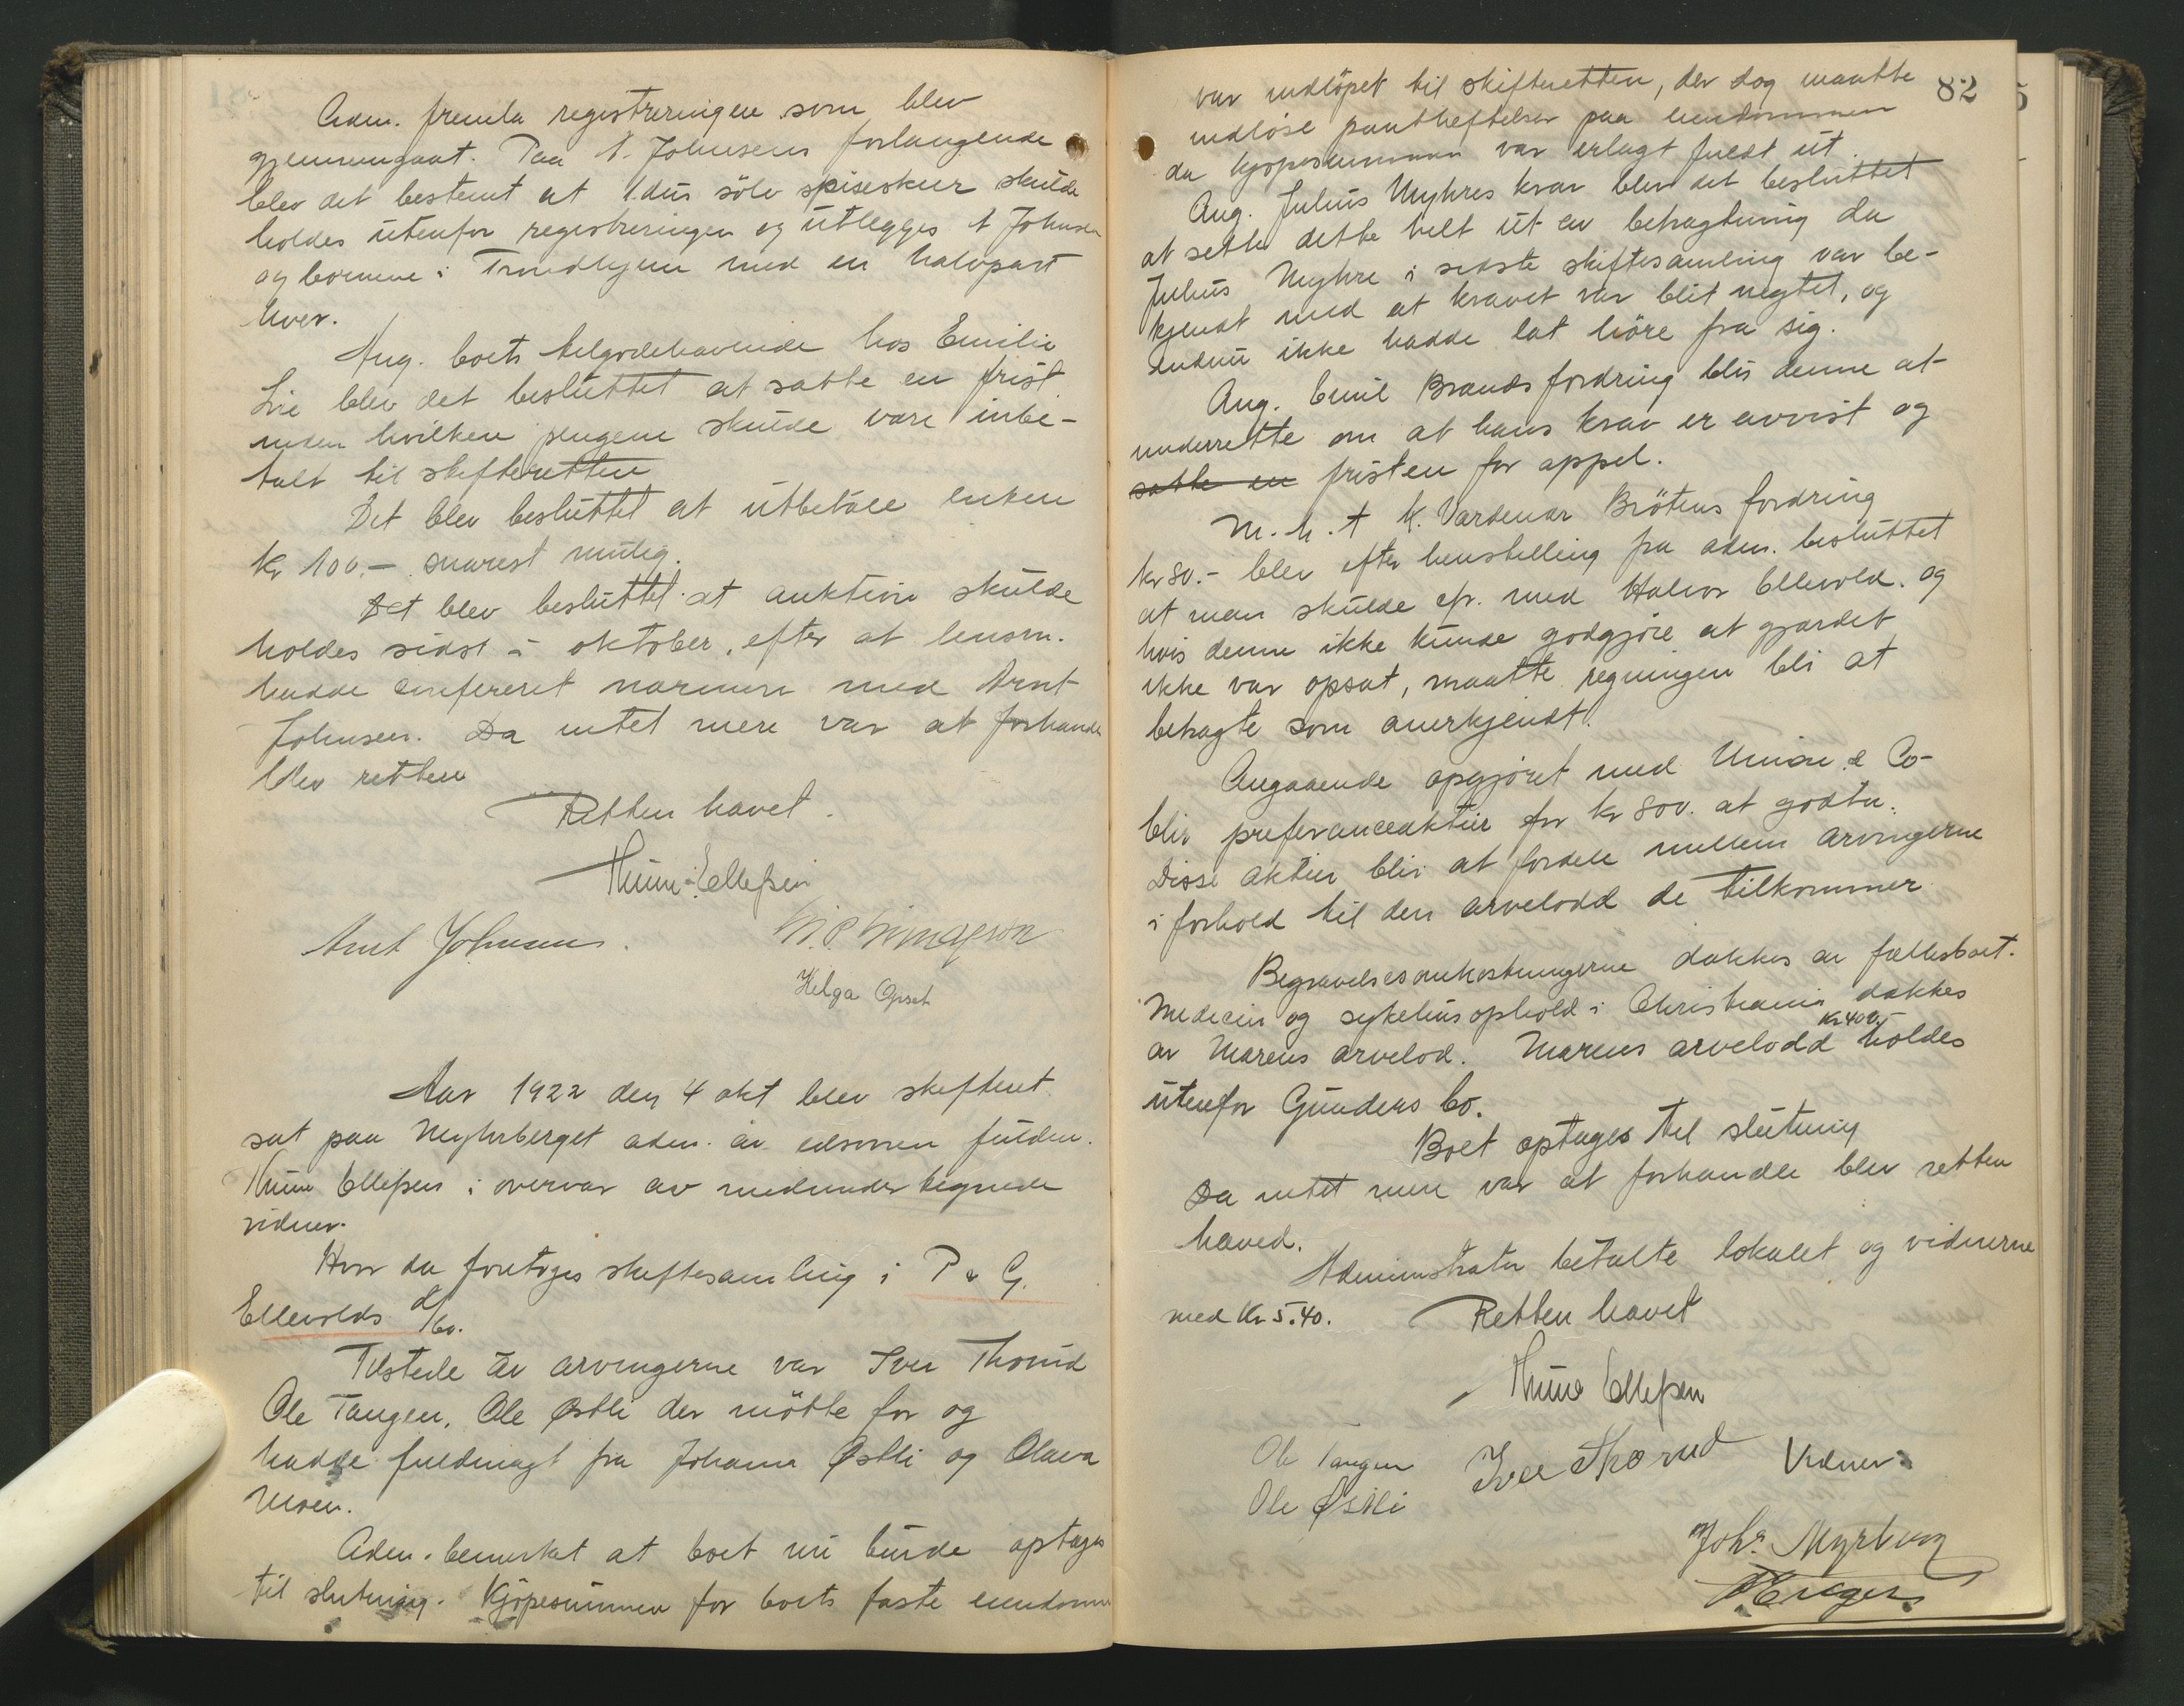 Adm. fremla registreringen som blev
gjennemgaat. Paa A. Johnsens forlangende
blev det bestemt at 1 dus sölv spiseskeer skulde
holdes utenfor registreringen og utlegges A Johnsen
og børnene i Trondhjem med en halvpart
hver.
Ang. boets tilgodehavende hos Emilie
Lie blev det besluttet at satte en frist
inden hvilken pengene skulde vare inbe-
talt til skifteretten
Det blev besluttet at utbetale enken
Kr 100.- snarest mulig.
Det blev besluttet at auktion skulde
holdes sidst i oktober, efter at lensm.
hadde confereret narmere med Arnt
Johnsen. Da intet mere var at forhandle
blev retten
Retten havet.
Thune Ellefsen
Arnt Johnsen.
Helga Opset
Aar 1922 den 4 okt blev skifteret
sat paa Myhrberget adm. av edsvoren fuldm.
Thune Ellefsen i overvar av medundertegnede
vidner.
Hvor da foretoges skiftesamling i P & G.
Ellevolds d/bo.
Tilstede av arvingerne var Iver Thorud
Ole Tangen, Ole Østli der mötte for og
hadde fuldmagt fra Johanna Østli og Olava
Moen.
Adm. bemerket at boet nu burde optages
til slutning. Kjöpesummen for boets faste eiendomme
82
var indlöpet til skifteretten, der dog maatte
indlöse pantheftelser paa eiendommen
da kjöpesummen var erlagt fuldt ut.
Ang. Julius Myhres krav blev det besluttet
at sette dette helt ut av betragtning da
Julius Myhre i sidste skiftesamling var be-
kjendt med at kravet var blit negtet, og
endnu ikke hadde lat höre fra sig.
Ang. Emil Brands fordring blir denne at
underrette om at hans krav er avvist og
satte en fristen for appel.
M. h. t K. Vardenar Brötens fordring
kr 80.- blev efter henstilling fra adm. besluttet
at man skulde cfr. med Halvor Ellevold. og
hvis denne ikke kunde godgjöre at gjardet
ikke var opsat, maatte regningen bli at
betragte som anerkjendt.
Angaaende opgjöret med Union & Co-
blir preferanceaktier for kr 800. at godta.
Disse aktier blir at fordele mellem arvingerne
i forhold til den arvelodd de tilkommer
Begravelsesomkostningerne dakkes av fællesboet.
Medicin og sykehusophold i Christiania dakkes
av Marens arvelod. Marens arvelodd Kr 400.- holdes
utenfor Gunders bo.
Boet optages til slutning
Da intet mere var at forhandle blev retten
haved.
Administrator betalte lokalet og vidnerne
med Kr 5.40. Retten havet
Thune Ellefsen
Ole Tangen Iver Thorud Vidner:
Ole Østli
Johs. Myrberg